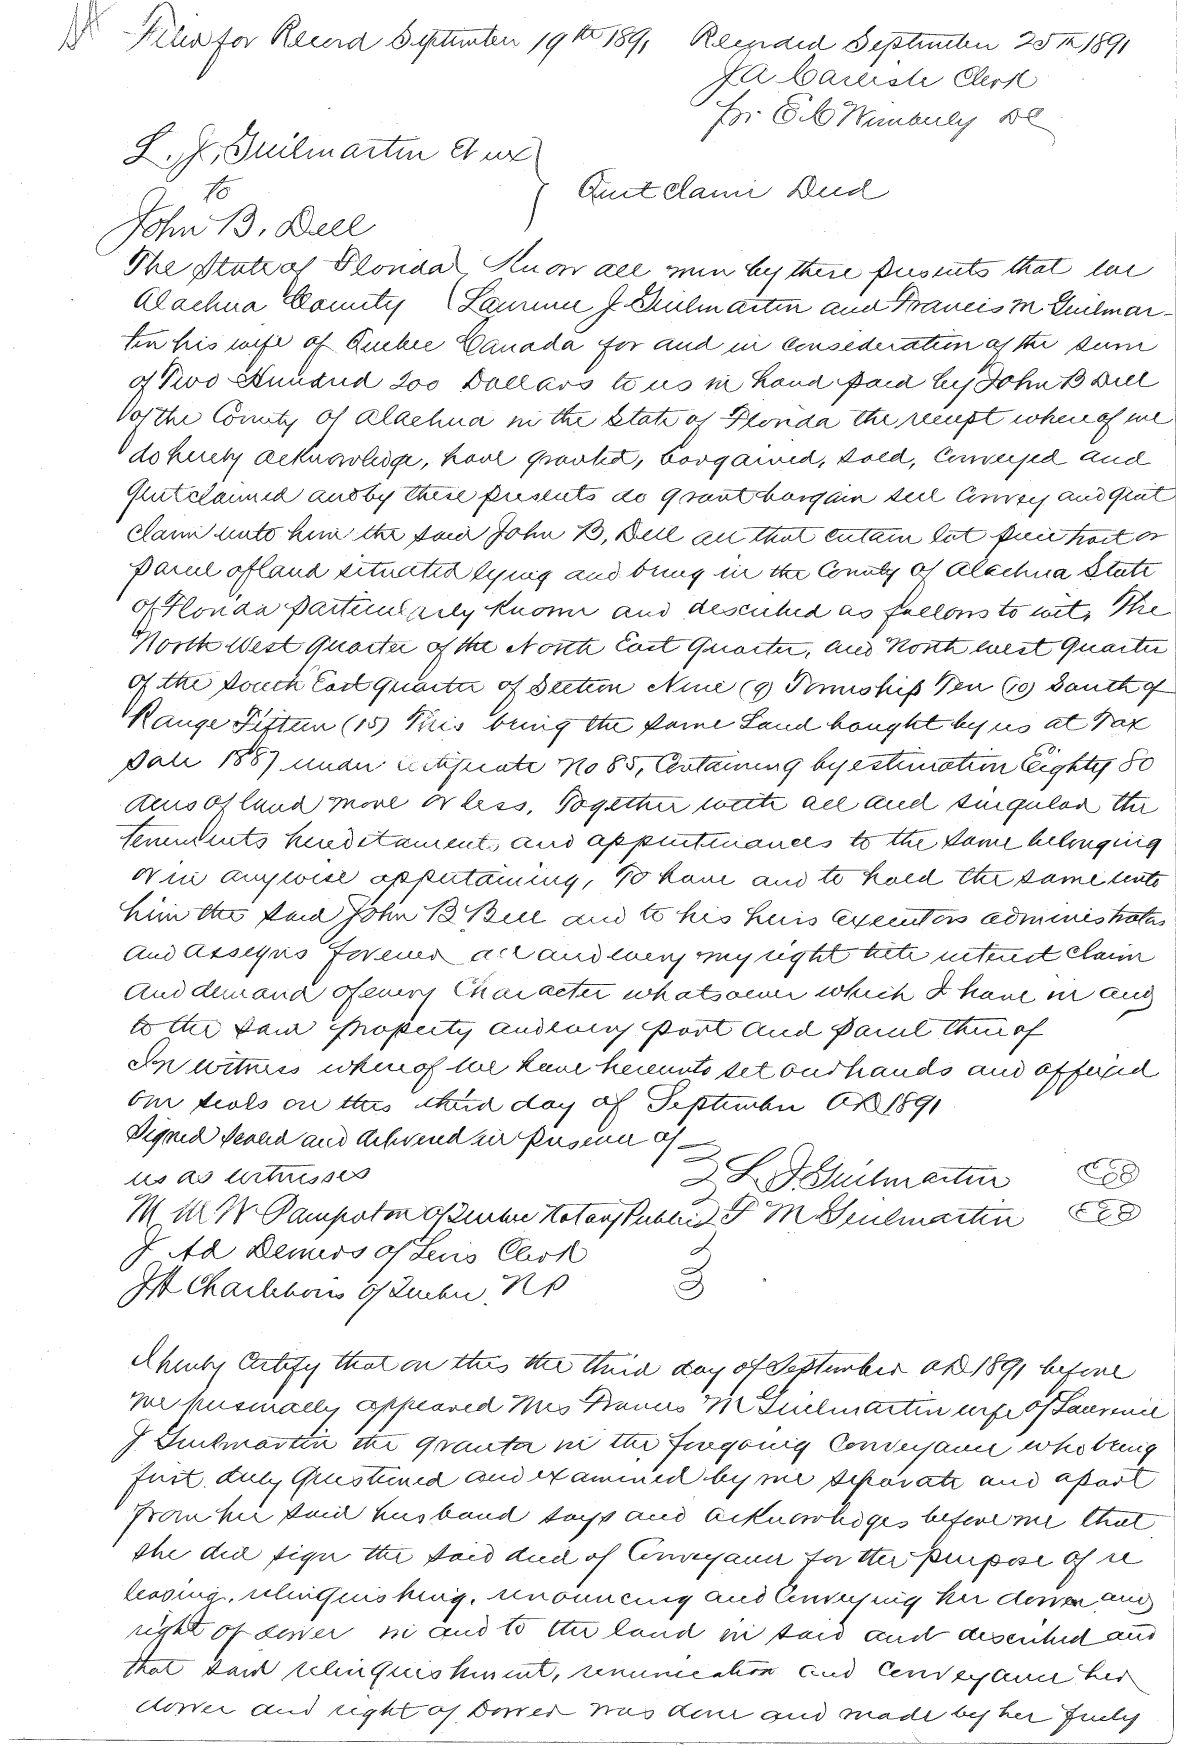 Filed for Record September 19th 1891 Recorded September 25th 1891
J A Carlisle Clerk
pr. E C Wimberly DC
L. J. Guilmartin et ux
to
Quit claim Deed
John B. Dell
The State of Florida Know all men by these presents that we
Alachua County Laurence J Guilmartin and Francis M Guilmar-
tin his wife of Quebec Canada for and in consideration of the sum
of Two Hundred 200 Dollars to us in hand paid by John B Dell
of the County of Alachua in the State of Florida the receipt where of we
do hereby acknowledge, have granted, bargained, sold, Conveyed and
Quitclaimed and by these presents do grant bargain sell Convey and Quit
claim unto him the said John B, Dell all that certain lot piece tract or
parcel of land situated lying and being in the County of Alachua State
of Florida particularly Known and described as follows to wit, The
North West Quarter of the North East Quarter, and North west Quarter
of the South East Quarter of Section Nine (9) Township Ten (10) South of
Range Fifteen (15) This being the same Land bought by us at Tax
Sale 1887 under certificate No 85, Containing by estimation Eighty 80
acres of land more or less, Together with all and singular the
tenements hereditaments and appurtenances to the same belonging
or in anywise appertaining, To have and to hold the same unto
him the said John B Bell and to his heirs executors administrators
and assegns forever all and every my right title interest claim
and demand of every Character whatsoever which I have in and
to the said property and every part and parcel thereof
In witness whereof we have hereunto set our hands and affixed
our seals on this third day of September AD 1891
Signed sealed and delivered in presence of
us as witnesses L J Guilmartin
M W Pampoton of Quebec Notary Public F M Guilmartin
J Ad Demers of Levis Clerk
J A Charlebois of Quebec. N P
I hereby Certify that on this the third day of September AD 1891 before
me personally appeared Mrs Francis M Guilmartin wife of Laurence
J Guilmartin the grantor in the foregoing Conveyance who being
first duly Questioned and examined by me separate and apart
from her said husband says and acknowledges before me that
she did sign the said deed of Conveyance for the purpose of re
leasing, relinquishing, renouncing and Conveying her dower and
right of dower in and to the land in said and described and
that said relinquishment, renunciation and Conveyance her
dower and right of Dower was done and made by her freely